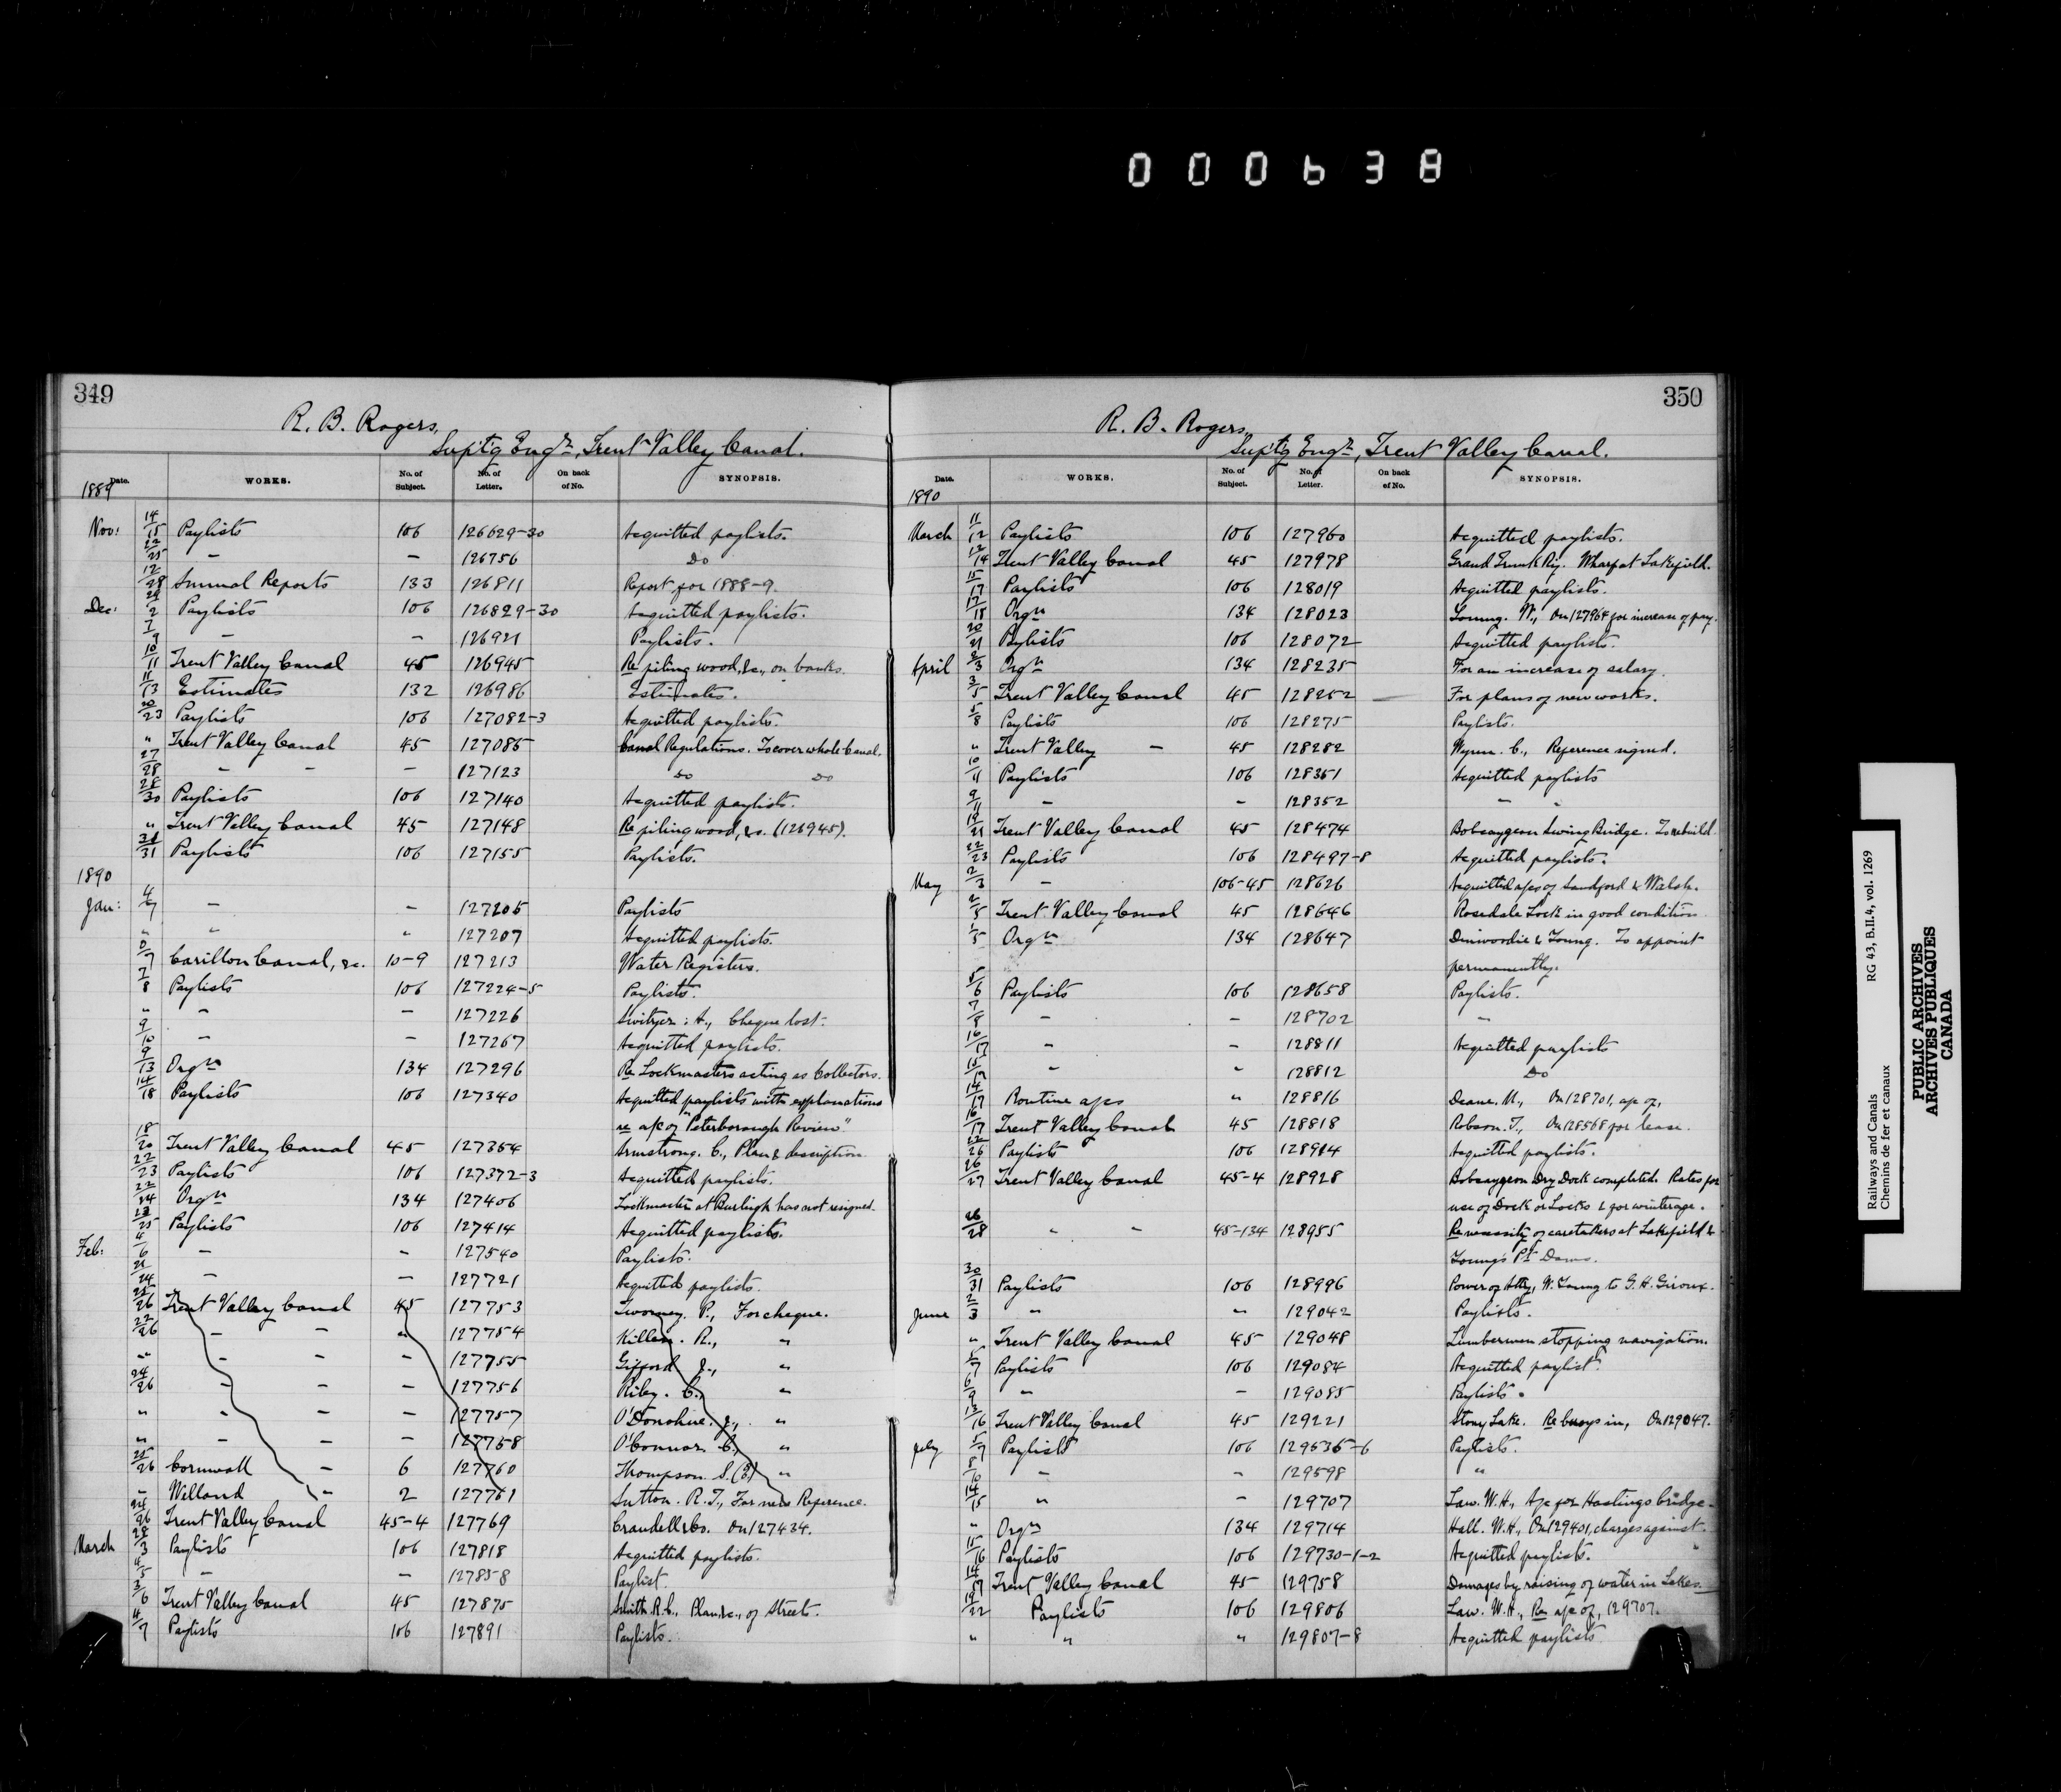 000638
349
R. B. Rogers,
Supt'g Engr, Trent Valley Canal.
Date. WORKS. No. of Subject. No. of Letter. On back of No. SYNOPSIS.
1889
Nov: 14/15 Paylists 106 126629-30 Acquitted paylists.
22/25 — — 126756 Do
12/28 Annual Reports 133 126811 Report for 1888-9.
Dec: 29/2 Paylists 106 126829-30 Acquitted paylists.
7/9 — — 126921 Paylists.
10/11 Trent Valley Canal 45 126945 Re piling wood, &c., on banks.
11/13 Estimates 132 126986 Estimates.
20/23 Paylists 106 127082-3 Acquitted paylists.
" Trent Valley Canal 45 127085 Canal Regulations. To cover whole Canal.
27/28 — — — 127123 Do Do
28/30 Paylists 106 127140 Acquitted paylists.
" Trent Valley Canal 45 127148 Re piling wood, &c. (126945).
31 Paylists 106 127155 Paylists.
1890
Jan: 4/7 — — 127205 Paylists
" " " 127207 Acquitted paylists.
/7 Carillon Canal, &c. 10-9 127213 Water Registers.
7/8 Paylists 106 127224-5 Paylists.
" — — 127226 Switzer: A., Cheque lost.
9/10 — — 127267 Acquitted paylists.
9/13 Orgn 134 127296 Re Lockmasters acting as Collectors.
14/18 Paylists 106 127340 Acquitted paylists with explanations
re a/c of "Peterborough Review"
18/20 Trent Valley Canal 45 127354 Armstrong. C., Plan & description.
22/23 Paylists 106 127372-3 Acquitted paylists.
22/24 Orgn 134 127406 Lockmaster at Burleigh has not resigned.
23/25 Paylists 106 127414 Acquitted paylists.
Feb: 4/6 — — 127540 Paylists.
21/24 — — 127721 Acquitted paylists.
25/26 Trent Valley Canal 45 127753 Twomey. P., For cheque.
22/26 — — " 127754 Killen. R., "
" — — — 127755 Gifford J., "
24/26 — — — 127756 Riley. C., "
" — — — 127757 O'Donohue. J., "
" — — — 127758 O'Connor. C., "
25/26 Cornwall — 6 127760 Thompson. S. (3) "
— Welland " 2 127761 Sutton. R. T., For new Reference.
24/26 Trent Valley Canal 45-4 127769 Crandell & Co. On 127434.
March 28/3 Paylists 106 127818 Acquitted paylists.
4/5 — — 127858 Paylist.
3/6 Trent Valley Canal 45 127875 Smith R. C., Plan &c., of Street.
4/7 Paylists 106 127891 Paylists.
350
R. B. Rogers,
Supt'g Engr, Trent Valley Canal.
Date. WORKS. No. of Subject. No. of Letter. On back of No. SYNOPSIS.
1890
March 11/12 Paylists 106 127960 Acquitted paylists.
12/14 Trent Valley Canal 45 127978 Grand Trunk Ry. Wharf at Lakefield.
15/17 Paylists 106 128019 Acquitted paylists.
17/18 Orgn 134 128023 Young. W., On 127964 for increase of pay.
20/21 Paylists 106 128072 Acquitted paylists.
April 2/3 Orgn 134 128235 For an increase of salary.
3/5 Trent Valley Canal 45 128252 For plans of new works.
5/8 Paylists 106 128275 Paylists.
" Trent Valley — 45 128282 Wynn. C., Reference signed.
10/11 Paylists 106 128351 Acquitted paylists
9/11 — — 128352 " "
19/21 Trent Valley Canal 45 128474 Bobcaygeon Swing Bridge. To rebuild.
22/23 Paylists 106 128497-8 Acquitted paylists.
May 2/3 — 106-45 128626 Acquitted a/cs of Sandford & Walsh.
2/5 Trent Valley Canal 45 128646 Rosedale Lock in good condition.
1/5 Orgn 134 128647 Dinwoodie & Young. To appoint
permanently.
5/6 Paylists 106 128658 Paylists.
7/8 — — 128702 "
16/17 — — 128811 Acquitted paylists
15/17 " " 128812 Do
14/17 Routine a/cs " 128816 Deane. M., On 128701, a/c of,
16/17 Trent Valley Canal 45 128818 Robson. T., On 128568 for lease.
22/26 Paylists 106 128914 Acquitted paylists.
26/27 Trent Valley Canal 45-4 128928 Bobcaygeon Dry Dock completed. Rates for
use of Dock or Locks & for winterage.
26/28 " — 45-134 128955 Re necessity of caretakers at Lakefield &
Young's Pt Dams.
30/31 Paylists 106 128996 Power of Atty, W. Young to G. H. Giroux.
June 2/3 " " 129042 Paylists.
" Trent Valley Canal 45 129048 Lumbermen stopping navigation.
5/7 Paylists 106 129084 Acquitted paylist.
6/9 " — 129085 Paylists.
13/16 Trent Valley Canal 45 129221 Stony Lake. Re buoys in, On 129047.
July 5/7 Paylists 106 129535-6 Paylists.
8/10 — — 129598 "
14/15 " — 129707 Law. W. H., A/c for Hastings bridge.
" Orgn 134 129714 Hall. W. H., On 129401, charges against.
15/16 Paylists 106 129730-1-2 Acquitted paylists.
14/17 Trent Valley Canal 45 129758 Damages by raising of water in Lakes.
19/22 Paylists 106 129806 Law. W. H., Re a/c of, 129707.
" " " 129807-8 Acquitted paylists
Railways and Canals RG 43, B.II.4, vol. 1269
Chemins de fer et canaux
PUBLIC ARCHIVES
ARCHIVES PUBLIQUES
CANADA